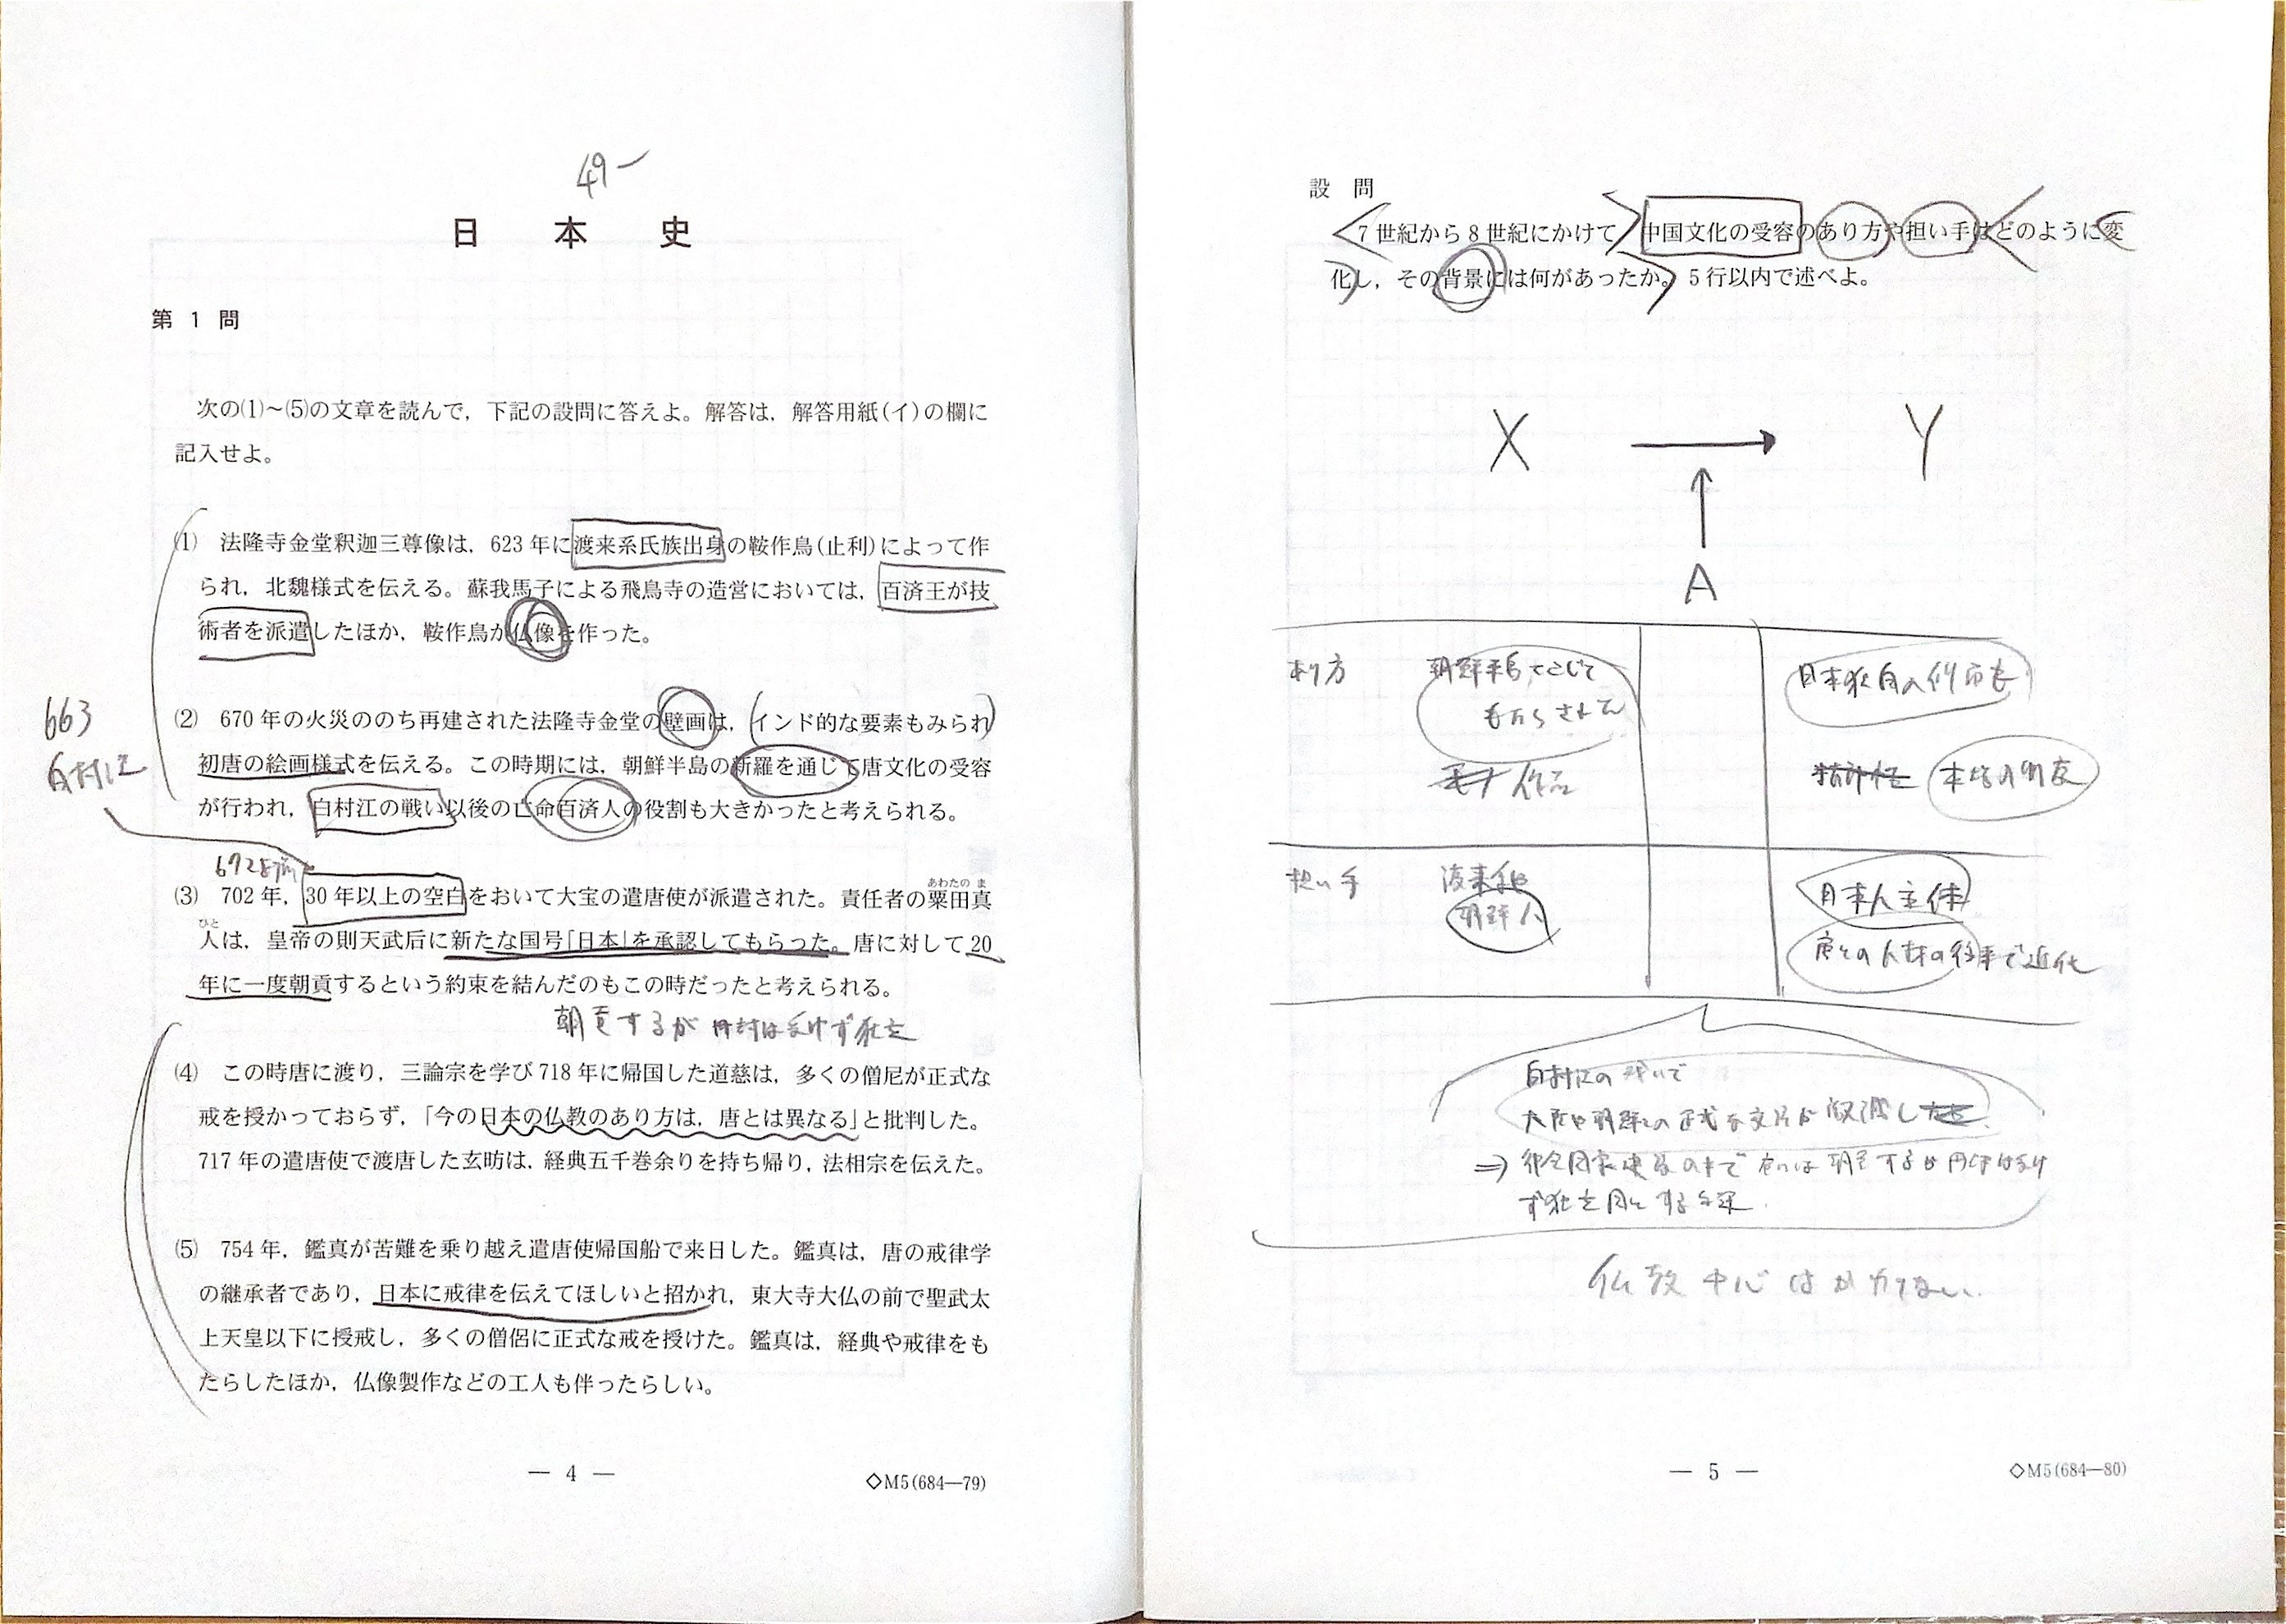 49
日本史
第1問
次の(1)~(5)の文章を読んで，下記の設問に答えよ。解答は，解答用紙(イ)の欄に
記入せよ。
(1) 法隆寺金堂釈迦三尊像は，623年に渡来系氏族出身の鞍作鳥(止利)によって作
られ，北魏様式を伝える。蘇我馬子による飛鳥寺の造営においては，百済王が技
術者を派遣したほか，鞍作鳥が仏像を作った。
(2) 670年の火災ののち再建された法隆寺金堂の壁画は，インド的な要素もみられ
初唐の絵画様式を伝える。この時期には，朝鮮半島の新羅を通じて唐文化の受容
が行われ，白村江の戦い以後の亡命百済人の役割も大きかったと考えられる。
663
白村江
672
(3) 702年，30年以上の空白をおいて大宝の遣唐使が派遣された。責任者の粟田真
あわたの ま
人は，皇帝の則天武后に新たな国号「日本」を承認してもらった。唐に対して20
ひと
年に一度朝貢するという約束を結んだのもこの時だったと考えられる。
朝貢するが 冊封は受けず独立
(4) この時唐に渡り，三論宗を学び718年に帰国した道慈は，多くの僧尼が正式な
戒を授かっておらず，「今の日本の仏教のあり方は，唐とは異なる」と批判した。
717年の遣唐使で渡唐した玄昉は，経典五千巻余りを持ち帰り，法相宗を伝えた。
(5) 754年，鑑真が苦難を乗り越え遣唐使帰国船で来日した。鑑真は，唐の戒律学
の継承者であり，日本に戒律を伝えてほしいと招かれ，東大寺大仏の前で聖武太
上天皇以下に授戒し，多くの僧侶に正式な戒を授けた。鑑真は，経典や戒律をも
たらしたほか，仏像製作などの工人も伴ったらしい。
— 4 —
◇M5(684—79)
設問
7世紀から8世紀にかけて，中国文化の受容のあり方や担い手はどのように変
化し，その背景には何があったか。5行以内で述べよ。
X → Y
A
あり方
朝鮮半島を通じて
もたらされた
作品
日本独自の
本場の
担い手
渡来系
朝鮮人
日本人主体
唐との人材の往来で
白村江の戦いで
朝鮮との正式な
⇒ 律令国家建設の中で唐には朝貢するが冊封は受け
ず独立
仏教中心は
— 5 —
◇M5(684—80)